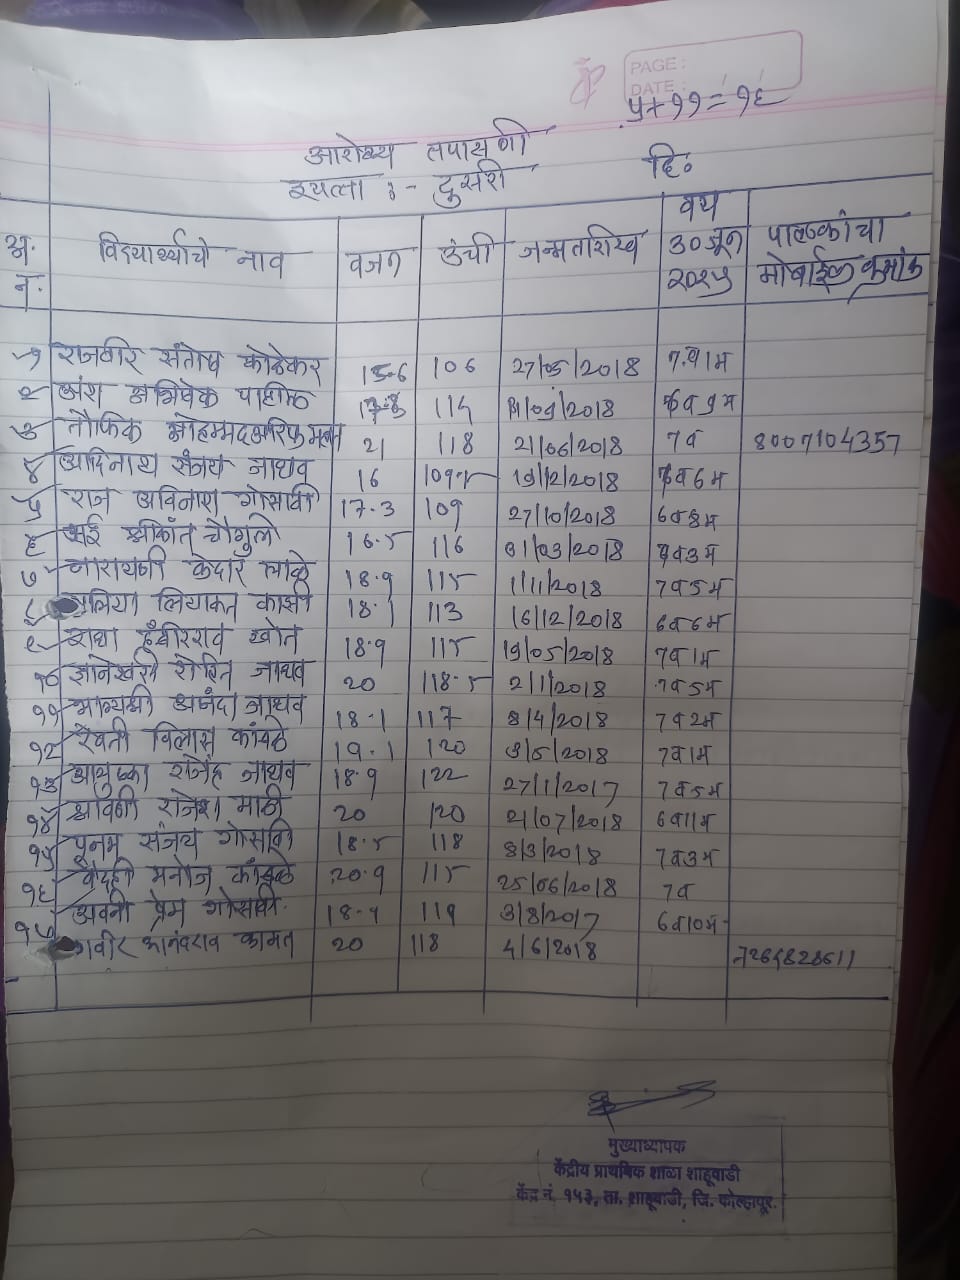 PAGE :
DATE :
५+११=१६
आरोग्य तपासणी
इयत्ता :- दुसरी दि.
अ.न. विद्यार्थ्याचे नाव वजन उंची जन्मतारीख वय 30 जून २०२५ पालकांचा मोबाईल क्रमांक
१ राजवीर संतोष कोठेकर 15.6 106 27/05/2018 7.व1म
२ अंश अभिषेक पाटील 17.8 114 /2018
३ तौफिक मोहम्मदआरिफ 21 118 21/06/2018 7व 8007104357
४ आदिनाथ संजय जाधव 16 /12/2018
५ राज अविनाश गोसावी 17.3 109 27/10/2018 6व8म
६ सई श्रीकांत चौगुले 16.5 116 31/03/2018
७ नारायणी केदार 18.9 115 1/11/2018 7व5म
८ लियाकत काझी 18.1 113 16/12/2018 6व6म
९ राधा हंबीरराव खोत 18.9 115 19/05/2018 7व1म
१० ज्ञानेश्वरी रोहित जाधव 20 118.5 2/1/2018 7व5म
११ भाग्यश्री आनंदा जाधव 18.1 117 8/4/2018 7व2म
१२ रेवती विलास कांबळे 19.1 120 3/5/2018 7व1म
१३ राजेंद्र जाधव 18.9 122 27/1/2017 7व5म
१४ श्रावणी राजेश माळी 20 120 21/07/2018 6व11म
१५ पूनम संजय गोसावी 18.5 118 8/3/2018 7व3म
१६ वैदही मनोज कांबळे 20.9 115 25/06/2018 7व
१७ अवनी प्रेम गोसावी. 18.9 119 3/8/2017 6व10म
आनंदराव कामत 20 118 4/6/2018
मुख्याध्यापक
केंद्रीय प्राथमिक शाळा शाहूवाडी
केंद्र नं. १५३, ता. शाहूवाडी, जि. कोल्हापूर.